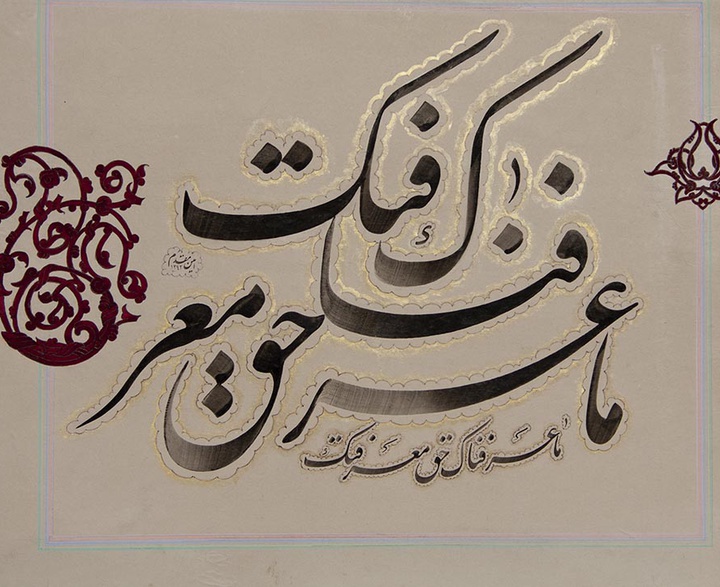 ما عرفناک حق معرفتک
ما عرفناک حق معرفتک